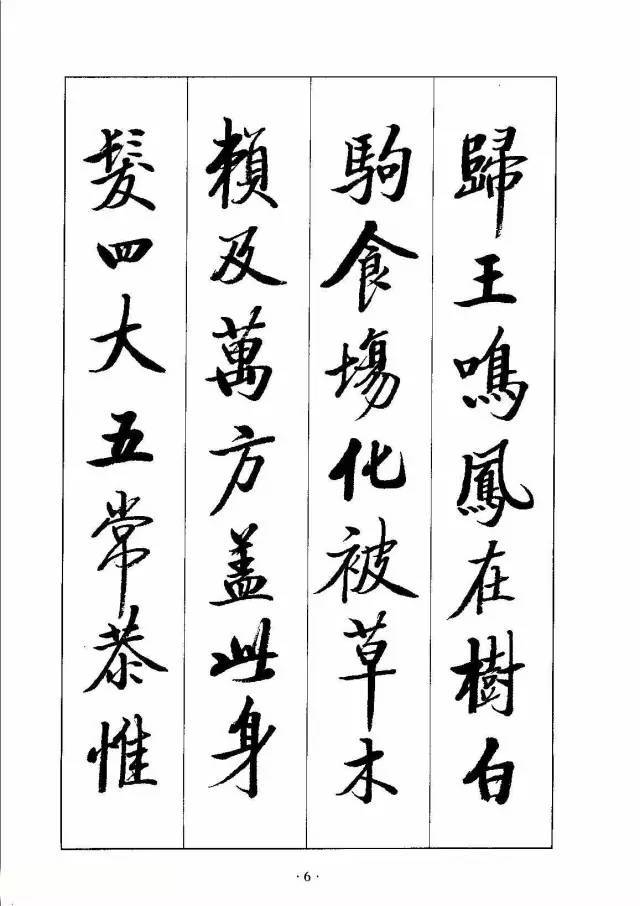 歸王鳴鳳在樹白
駒食場化被草木
賴及萬方盖此身
髮四大五常恭惟
·6·